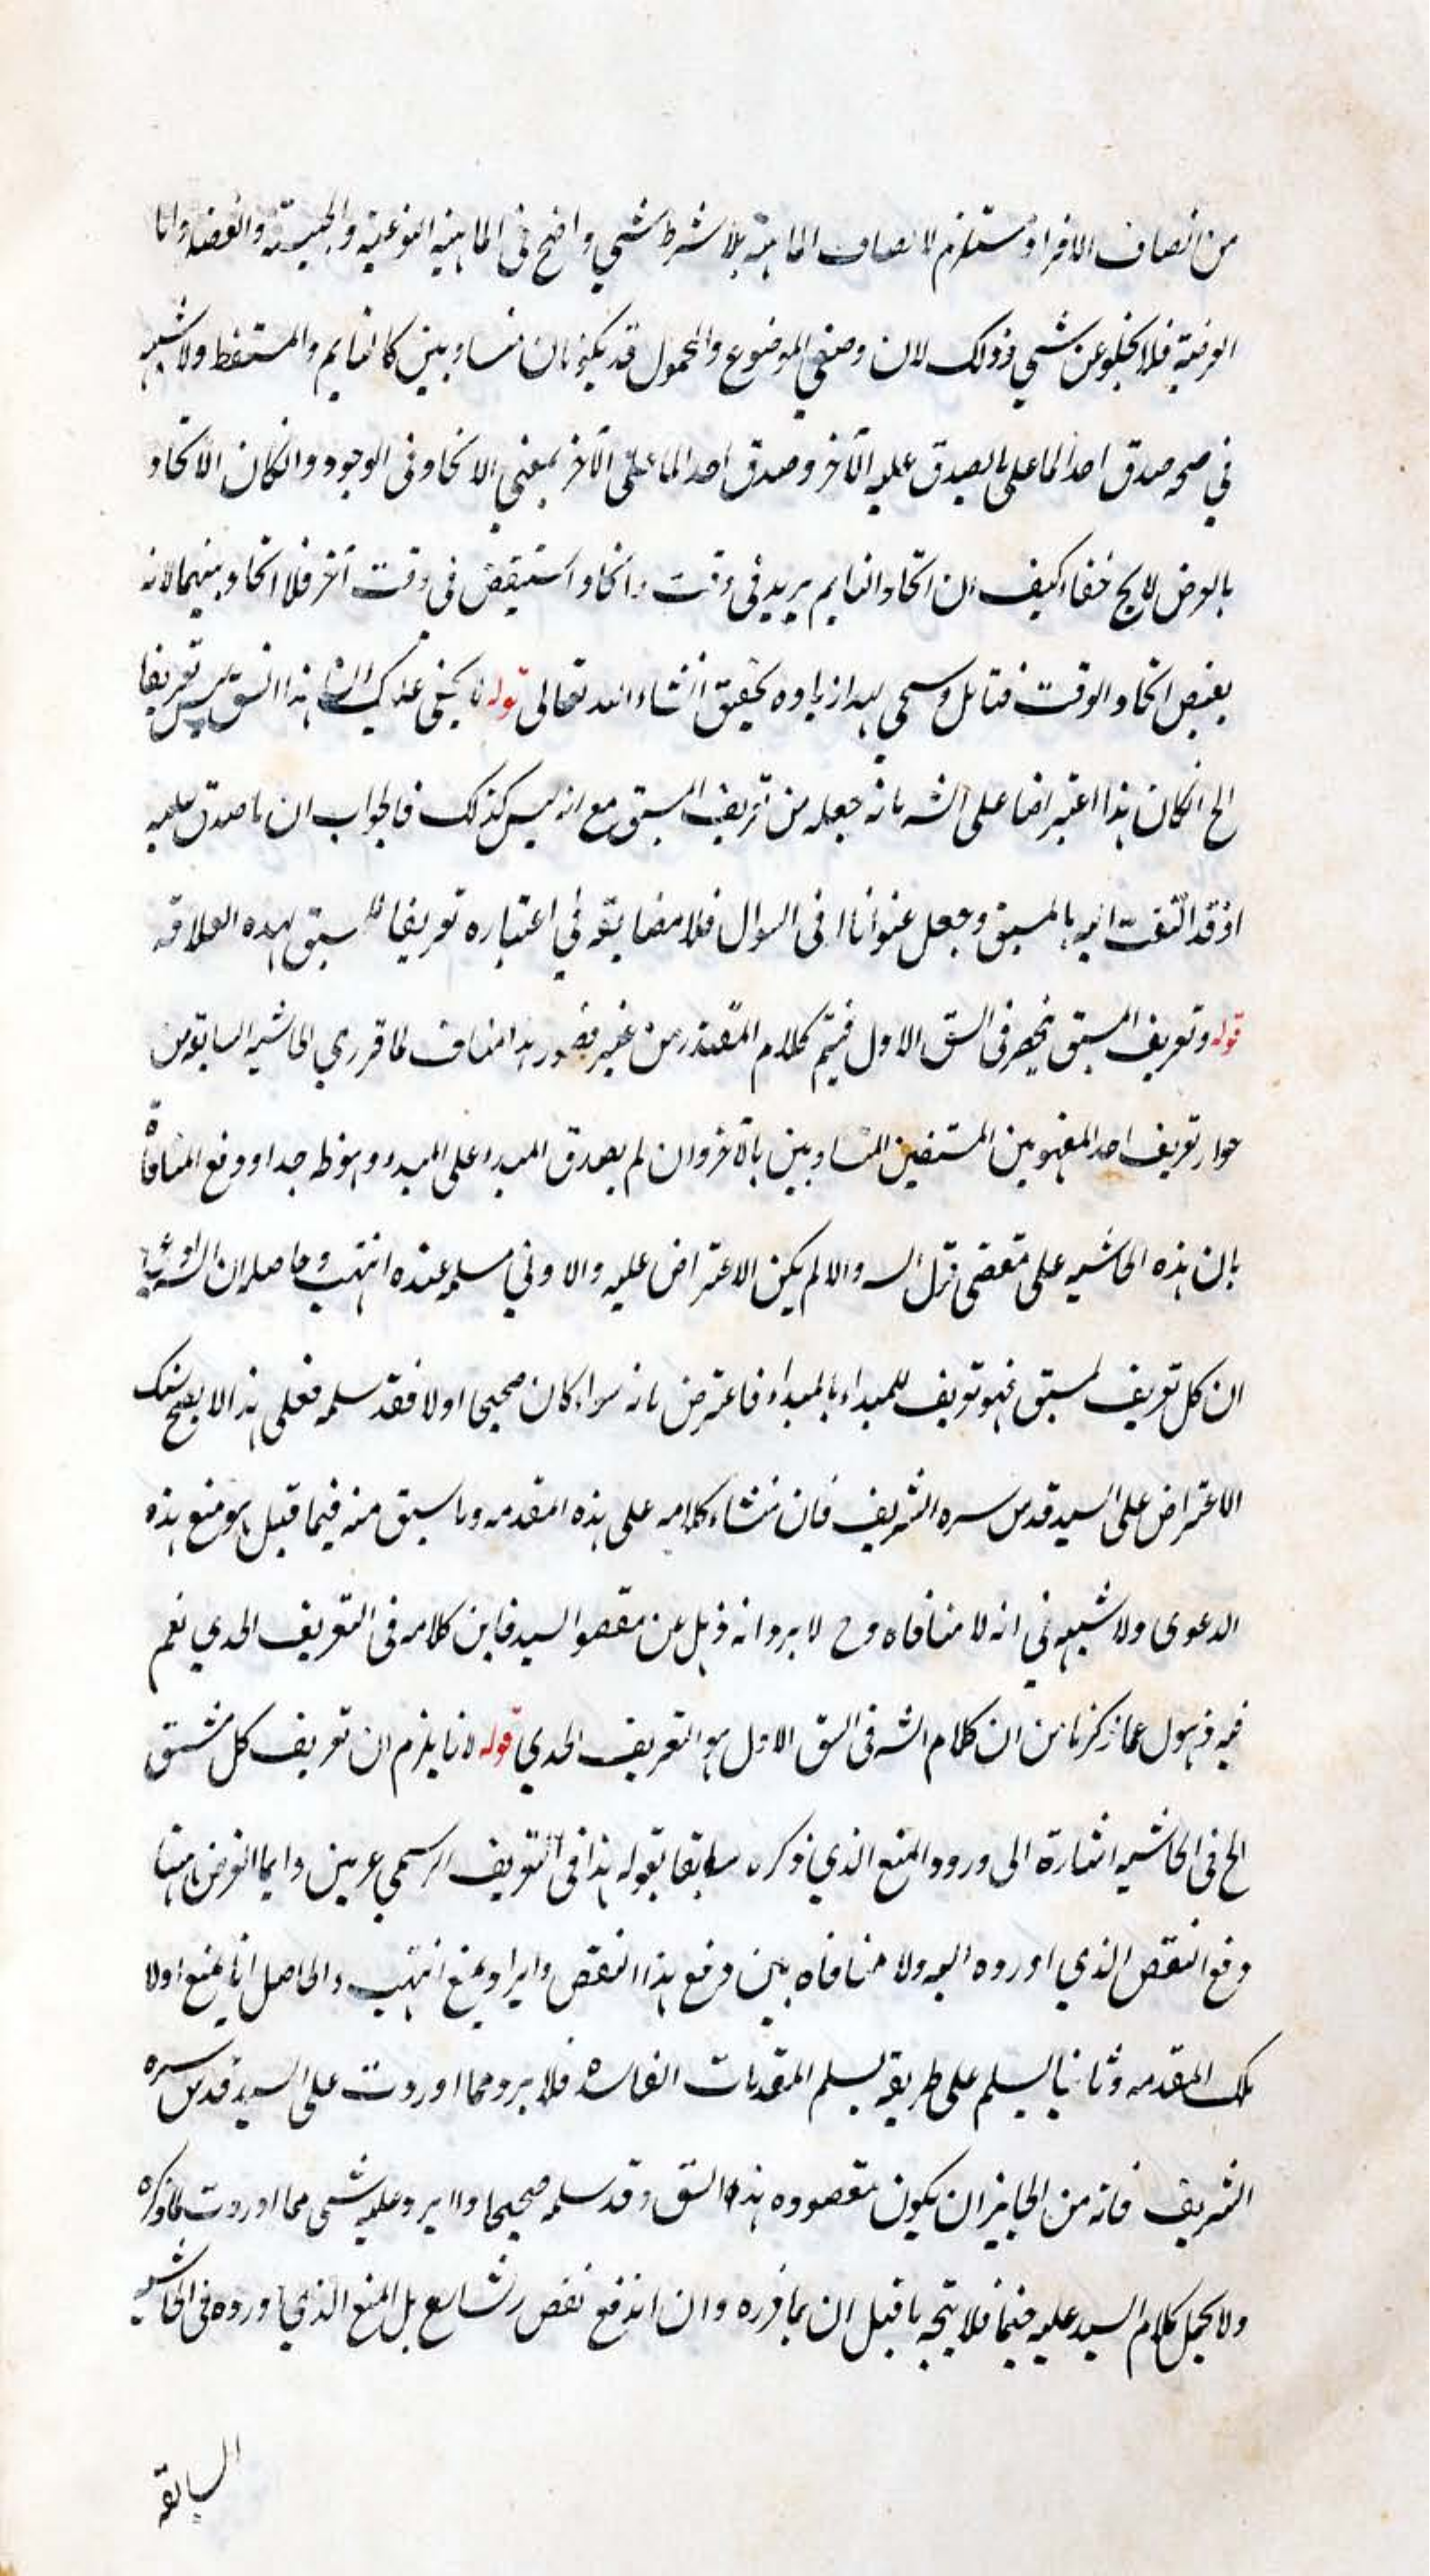 من اتصاف الافراد مستلزم لاتصاف الماهية بلا شرط شي واضح في الماهية النوعية والجنسية والفصل واما
العرضية فلا يخلو عن شي وذلك لان وصفي الموضوع والمحمول قد يكونان متساويين كالنايم والمستيقظ ولا شبهه
في صحه صدق احدالما على ما يصدق عليه الآخر وصدق احدالما على الآخر بمعنى الاتحاد في الوجود وانكان الاتحاد
بالعرض لا يخ خفاء كيف ان اتحاد النايم بزيد في وقت واتحاد المستيقض في وقت آخر فلا اتحاد بينهما لانه
يقتضي اتحاد الوقت فتامل وسيجي لهذا زيادة تحقيق انشاء الله تعالى قوله لا يخفى عليك ان هذا الشق ليس تعريفا
الخ انكان هذا اعتراضا على الشه بانه جعله من تعريف المشتق مع انه ليس كذلك فالجواب ان ما صدق عليه
اذ قد التفت اليه بالمشتق وجعل عنوانا في السوال فلا مضايقه في اعتباره تعريفا للمشتق بهذه العلاقه
قوله وتعريف المشتق منحصر في الشق الاول فيتم كلام المعتذر من غير قصور هذا مناف لما قرر في الحاشيه السابقه من
جواز تعريف احد المفهومين المشتقين المتساويين بالآخر وان لم يصدق المبدء على المبدء وهو ظ جدا ودفع المنافاة
بان هذه الحاشيه على مقتضى قول الشه والا لم يكن الاعتراض عليه والاولى مسلمه عنده انتهى وحاصله ان الشه
ان كل تعريف لمشتق فهو تعريف للمبداء بالمبداء فاعترض بانه سواء كان صحيحا اولا فقد سلمه فعلى هذا لا يصح منك
الاعتراض على السيد قدس سره الشريف فان منشاء كلامه على هذه المقدمه وما سبق منه فيما قبل هو منع هذه
الدعوى ولا شبهه في انه لا منافاه وح لا يرد انه ذهل عن مقصو السيد فاين كلامه في التعريف الحدي نعم
فيه ذهول عما ذكرنا من ان كلام الشه في الشق الاول هو التعريف الحدي قوله لانا يلزم ان تعريف كل مشتق
الخ في الحاشيه اشارة الى ورود المنع الذي ذكره سابقا بقوله هذا في التعريف الرسمي عربين وايما الغرض هنا
دفع النقض الذي اورده اليه ولا منافاه بين دفع هذا النقض وايراد منع انتهى والحاصل انا نمنع اولا
تلك المقدمه وثانيا نسلم على طريقه تسلم المقدمات الفاسدة فلا يرد مما اوردت على السيد قدس سره
الشريف فانه من الجايز ان يكون مقصوده هذه الشق وقد سلمه صحيحا والا يرد عليه شي مما اوردت فما ذكره
ولا يحمل كلام السيد عليه فيما فلا يتجه ما قيل ان بما قرره وان اندفع نقض الشارع بل المنع الذي اورده في الحاشيه
السابقه